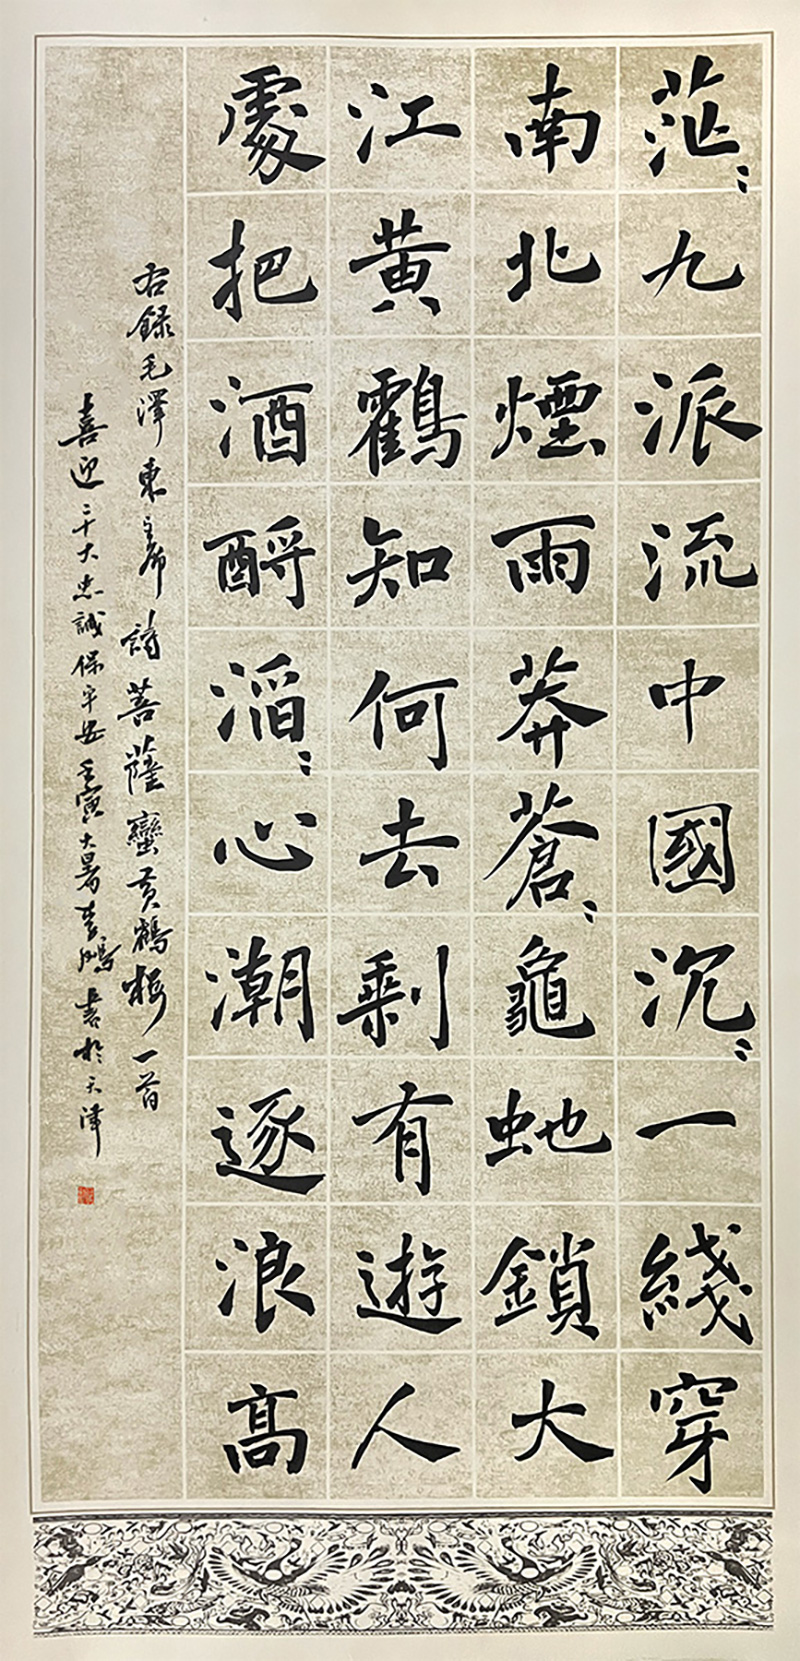 茫〻九派流中國沉〻一綫穿
南北煙雨莽蒼〻龜虵鎖大
江黄鸖知何去剩有遊人
處把酒酹滔〻心潮逐浪高
右録毛澤東主席詩菩薩蠻黄鶴樓一首
喜迎二十大忠誠保平安壬寅大暑書於天津